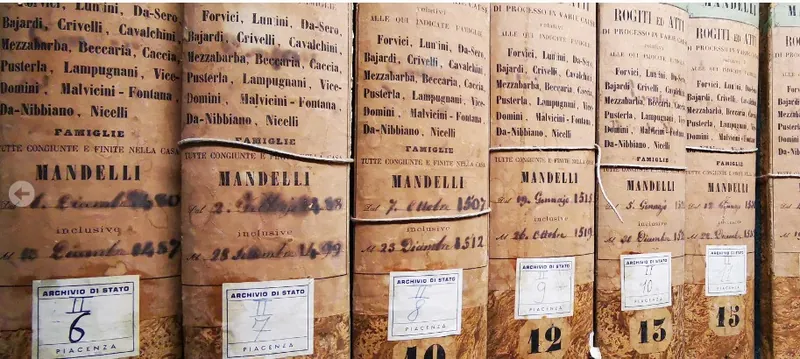 Forvici, Lunini, Da-Sero,
Bajardi, Crivelli, Cavalchini,
Mezzabarba, Beccaria, Caccia,
Pusterla, Lampugnani, Vice-
Domini, Malvicini-Fontana,
Da-Nibbiano, Nicelli
FAMIGLIE
TUTTE CONGIUNTE E FINITE NELLA CASA
MANDELLI
inclusive
Dicembre 1487
ARCHIVIO DI STATO
II
6
PIACENZA
Forvici, Lunini, Da-Sero,
Bajardi, Crivelli, Cavalchini,
Mezzabarba, Beccaria, Caccia,
Pusterla, Lampugnani, Vice-
Domini, Malvicini-Fontana,
Da-Nibbiano, Nicelli
FAMIGLIE
TUTTE CONGIUNTE E FINITE NELLA CASA
MANDELLI
Dal 2.
inclusive
Al 28 Settembre 1499
ARCHIVIO DI STATO
II
7
PIACENZA
DI PROCESSO IN VARIE CAUSE
ALLE QUI INDICATE FAMIGLIE
Forvici, Lunini, Da-Sero,
Bajardi, Crivelli, Cavalchini,
Mezzabarba, Beccaria, Caccia,
Pusterla, Lampugnani, Vice-
Domini, Malvicini-Fontana,
Da-Nibbiano, Nicelli
FAMIGLIE
TUTTE CONGIUNTE E FINITE NELLA CASA
MANDELLI
Dal 7. Ottobre 1507
inclusive
Al 23 Dicembre 1512
ARCHIVIO DI STATO
II
8
PIACENZA
10
DI PROCESSO IN VARIE CAUSE
ALLE QUI INDICATE FAMIGLIE
Forvici, Lunini, Da-Sero,
Bajardi, Crivelli, Cavalchini,
Mezzabarba, Beccaria, Caccia,
Pusterla, Lampugnani, Vice-
Domini, Malvicini-Fontana,
Da-Nibbiano, Nicelli
FAMIGLIE
TUTTE CONGIUNTE E FINITE NELLA CASA
MANDELLI
Dal 19 Gennajo
inclusive
Al 26 Ottobre 1519
ARCHIVIO DI STATO
II
9
PIACENZA
12
ROGITI ED ATTI
DI PROCESSO IN VARIE CAUSE
ALLE QUI INDICATE FAMIGLIE
Forvici, Lunini, Da-Sero,
Bajardi, Crivelli, Cavalchini,
Mezzabarba, Beccaria, Caccia,
Pusterla, Lampugnani, Vice-
Domini, Malvicini-Fontana,
Da-Nibbiano, Nicelli
FAMIGLIE
TUTTE CONGIUNTE E FINITE NELLA CASA
MANDELLI
Dal 5. Gennajo
inclusive
Dicembre
ARCHIVIO DI STATO
II
10
PIACENZA
13
MANDELLI
ROGITI ED ATTI
DI PROCESSO IN VARIE CAUSE
ALLE QUI INDICATE FAMIGLIE
Forvici, Lunini, Da-Sero,
Bajardi, Crivelli, Cavalchini,
Mezzabarba, Beccaria, Caccia,
Pusterla, Lampugnani, Vice-
Domini, Malvicini-Fontana,
Da-Nibbiano, Nicelli
FAMIGLIE
TUTTE CONGIUNTE E FINITE NELLA CASA
MANDELLI
Gennajo
inclusive
Dicembre
ARCHIVIO DI STATO
II
PIACENZA
15